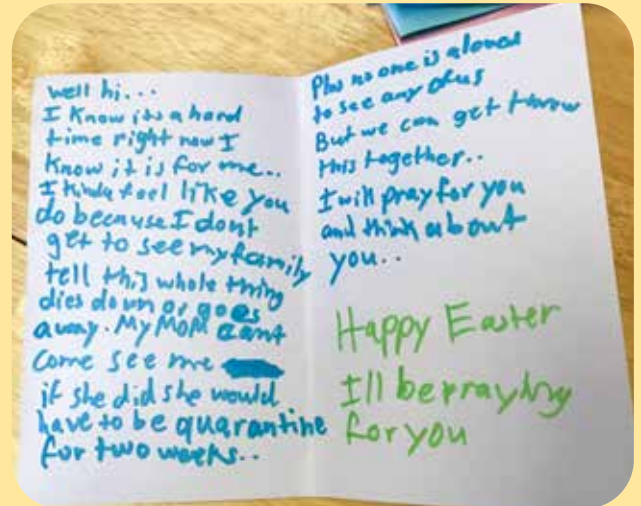 well hi...
I Know its a hard
time right now I
Know it is for me..
I kinda feel like you
do because I dont
get to see my family
tell this whole thing
dies down or goes
away. My MOM cant
Come see me
if she did she would
have to be quarantine
for two weeks..
Plus no one is aloued
to see any of us
But we can get throw
this together..
I will pray for you
and think about
you..
Happy Easter
I'll be praying
for you